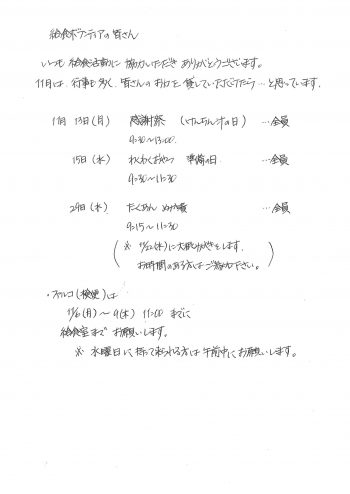 給食ボランティアの皆さん
いつも 給食活動に 協力いただき ありがとうございます。
11月は、行事も多く、皆さんの お力を 貸していただけたら…と思っています。
11月 13日(月) 感謝祭 (けんちん汁の日) …全員
9:30〜13:00
15日(水) わくわくおやつ 準備の日 …全員
9:30〜11:30
29日(水) たくあん ぬか漬 …全員
9:15〜11:30
(※ 11/22(水)に大根 をします。
お時間のある方は ご協力下さい。)
・ (検便)は
11/6(月)〜9(木) 11:00 までに
給食室まで お願いします。
※ 水曜日に 持って来られる方は 午前中に お願いします。